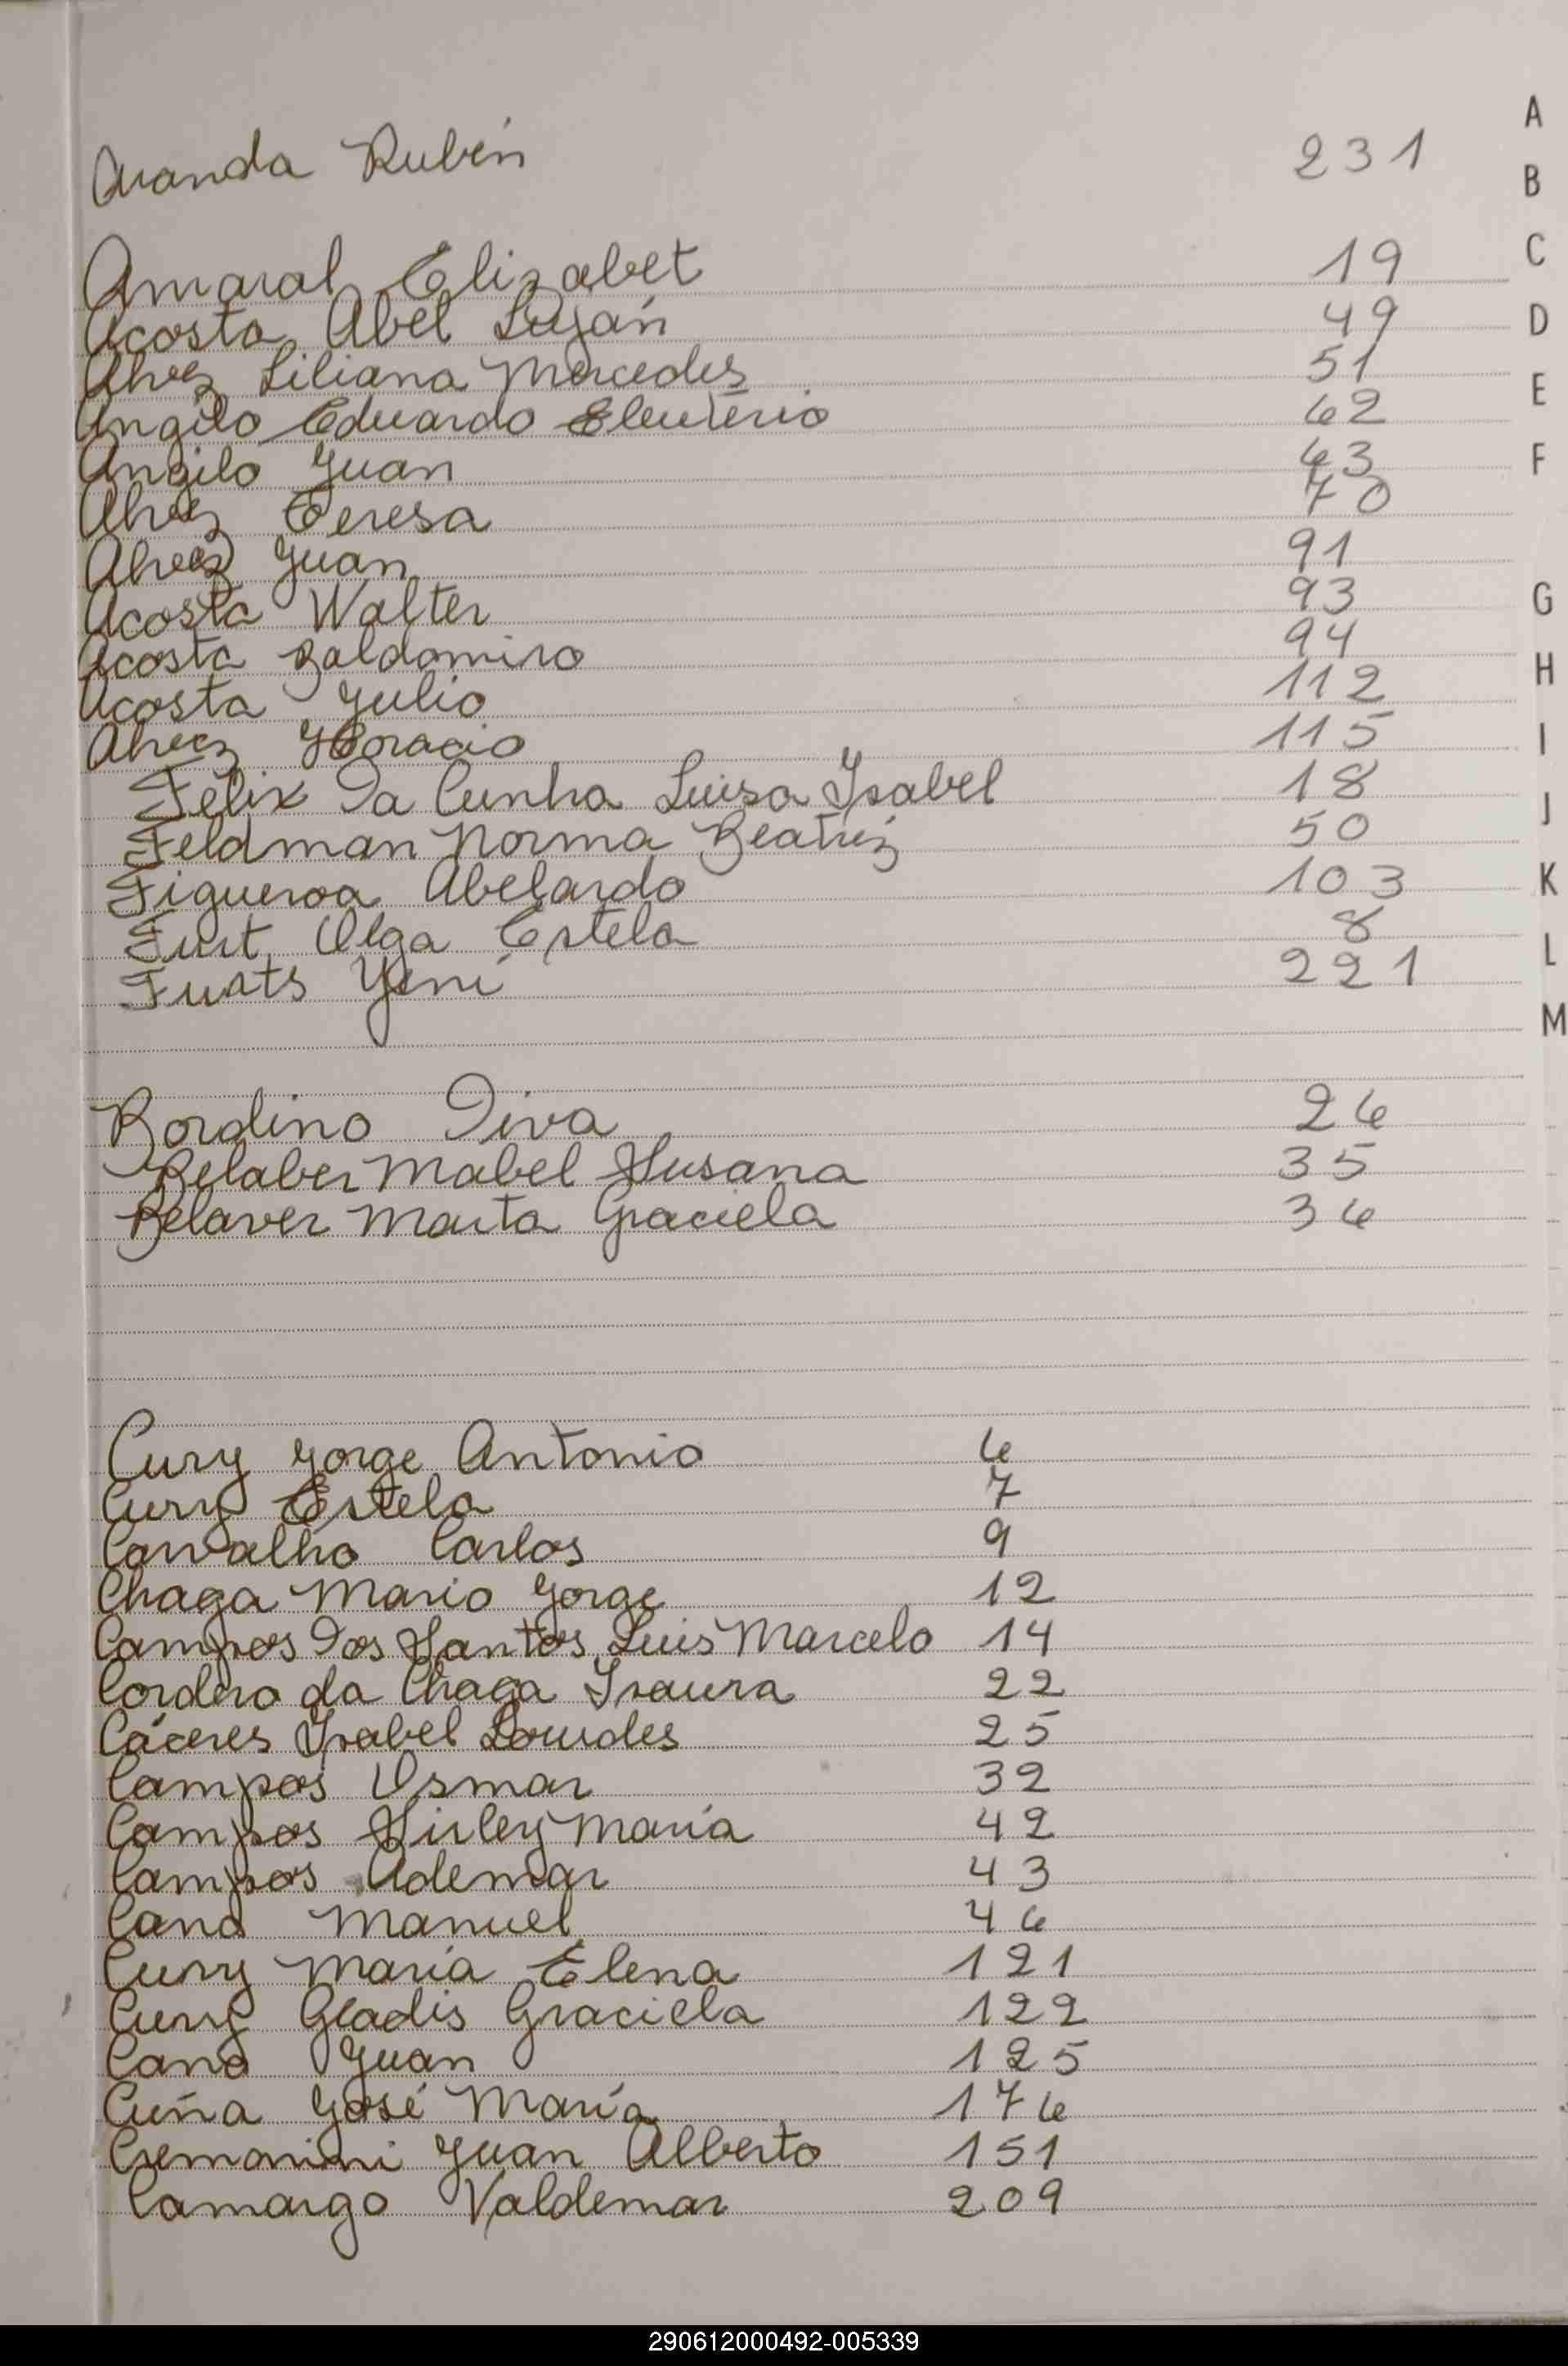 Aranda Rubén 231
Amaral Elizabet 19
Acosta Abel Luján 49
Alvez Liliana Mercedes 51
Angilo Eduardo Eleuterio 62
Angilo Juan 63
Alvez Teresa 70
Alvez Juan 91
Acosta Walter 93
Acosta Baldomiro 94
Acosta Julio 112
Alvez Horacio 115
Félix Da Cunha Luisa Isabel 18
Feldman Norma Beatriz 50
Figueroa Abelardo 103
Furt Olga Estela 8
Fuats Yeni 221
Bordino Diva 26
Belaber Mabel Susana 35
Belaver Marta Graciela 36
Cury Jorge Antonio 6
Cury Estela 7
Carvalho Carlos 9
Chaga Mario Jorge 12
Campos Dos Santos Luis Marcelo 14
Cordero da Chaga Isaura 22
Cáceres Isabel Lourdes 25
Campos Osmar 32
Campos Sirley María 42
Campos Ademar 43
Cano Manuel 46
Cury María Elena 121
Cury Gladis Graciela 122
Cano Juan 125
Cuña José María 176
Cremonini Juan Alberto 151
Camargo Valdemar 209
A
B
C
D
E
F
G
H
I
J
K
L
M
290612000492-005339